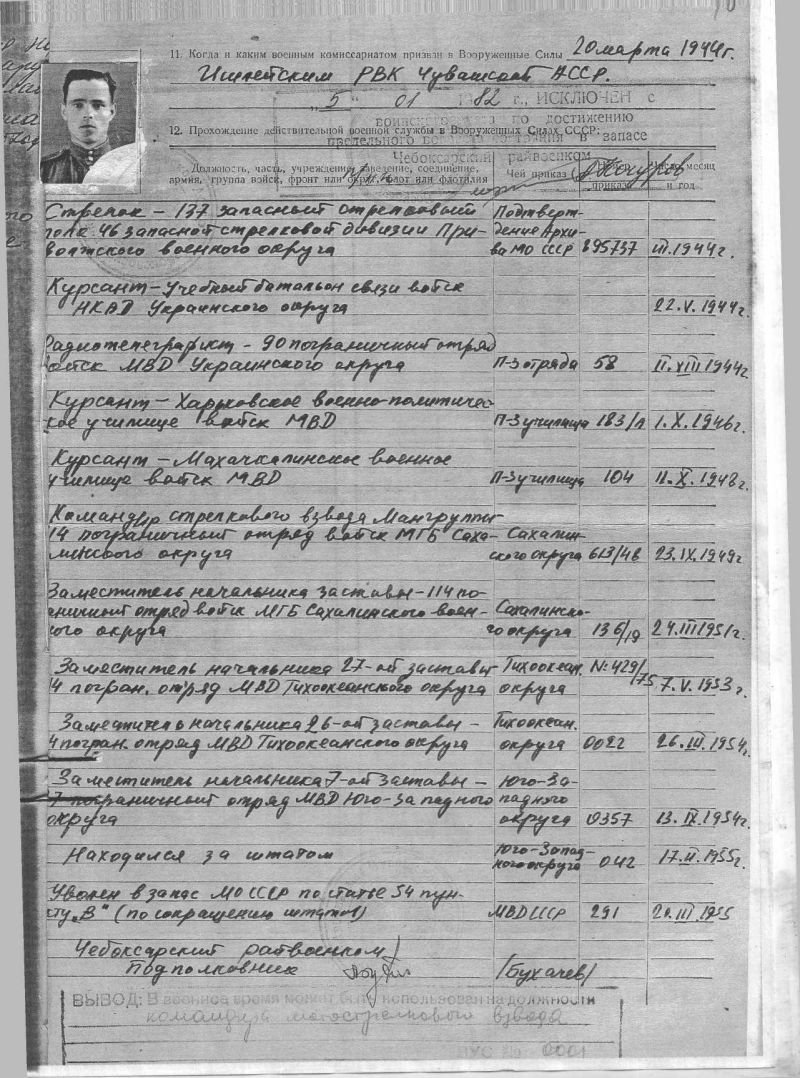 11. Когда и каким военным комиссариатом призван в Вооруженные Силы 20 марта 1944 г.
Ишлейским РВК Чувашской АССР.
"5" 01 1982 г., ИСКЛЮЧЕН с
воинского учета по достижению
12. Прохождение действительной военной службы в Вооруженных Силах СССР:
предельного состояния в запасе
Чебоксарский райвоенком
Должность, часть, учреждение, заведение, соединение,
армия, группа войск, фронт или округ, флот или флотилия
Чей приказ
приказа
Число, месяц
и год
Стрелок – 137 запасный стрелковый
полк 46 запасной стрелковой дивизии При-
волжского военного округа
Подтверж-
дение Архи-
ва МО СССР 895737 III.1944г.
Курсант – Учебный батальон связи войск
НКВД Украинского округа 22.V.1944г.
Радиотелеграфист – 90 пограничный отряд
войск МВД Украинского округа П-З отряда 58 11.XIII 1944г
Курсант – Харьковское военно-политичес-
кое училище войск МВД П-З училища 183/л 1.X.1946г.
Курсант – Махачкалинское военное
училище войск МВД П-З училища 104 11.X.1948г.
Командир стрелкового взвода Мангруппы
114 пограничный отряд войск МГБ Саха-
линского округа
Сахалин-
ского округа 613/48 23.IX.1949г
Заместитель начальника заставы – 114 по-
граничный отряд войск МГБ Сахалинского воен-
ного округа
Сахалинско-
го округа 136/19 24.III 1951г.
Заместитель начальника 27-ой заставы
погран. отряд МВД Тихоокеанского округа
Тихоокеан.
округа № 429/75 7.V.1953г.
Заместитель начальника 26-ой заставы –
погран. отряд МВД Тихоокеанского округа
Тихоокеан.
округа 0022 26.III.1954г.
Заместитель начальника 7-ой заставы –
7 пограничный отряд МВД Юго-Западного
округа
Юго-За-
падного
округа 0357 13.IX 1954г.
Находился за штатом
Юго-Запад-
ного округа 042 17.II 1955г.
Уволен в запас МО СССР по статье 54 пун-
кту "В" (по сокращению штатов) МВД СССР 291 20.III 1955
Чебоксарский райвоенком
Подполковник /Бухачев/
ВЫВОД: В военное время может быть использован на должности
командира мотострелкового взвода
ВУС № 0001